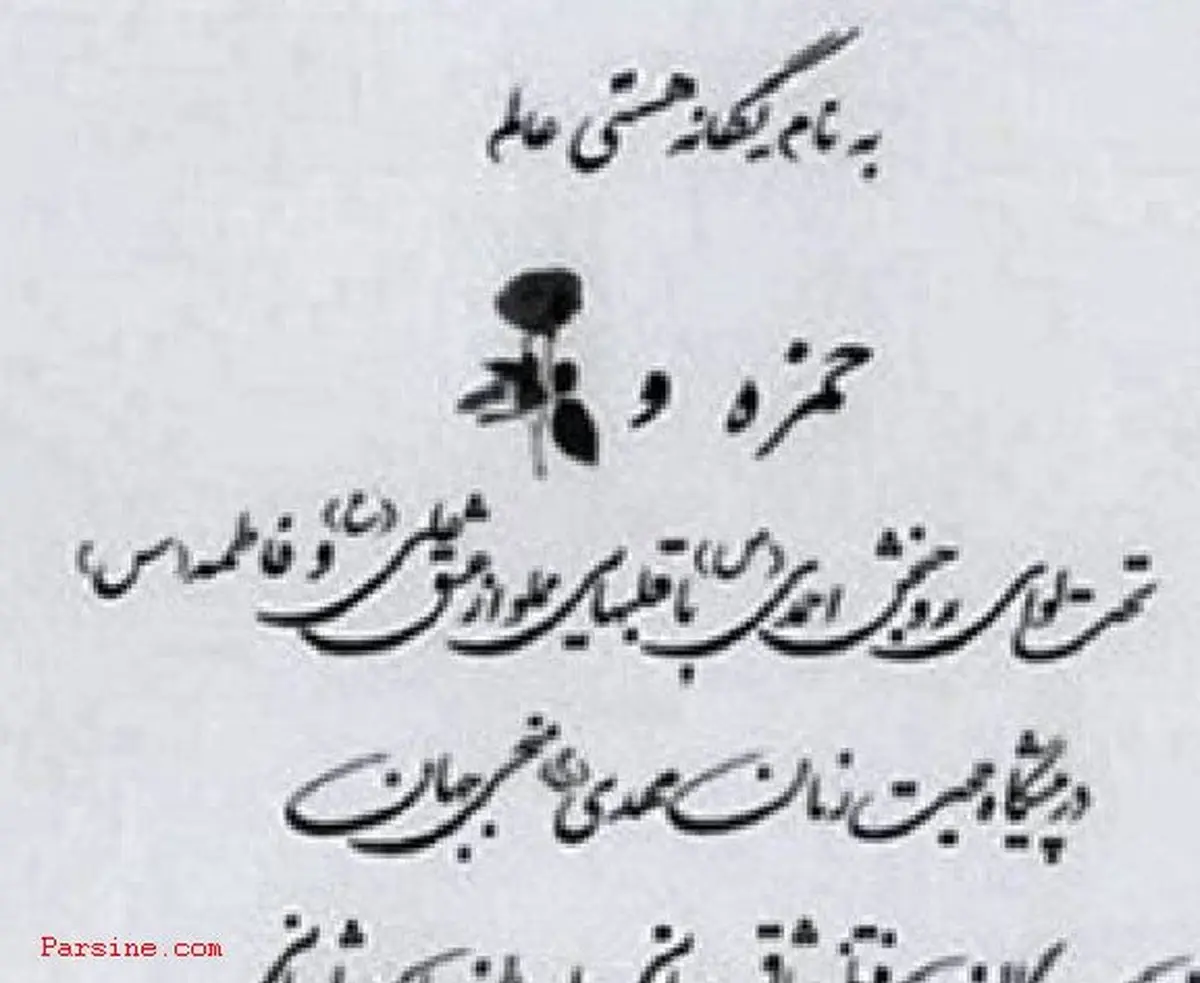 به نام یگانه هستی عالم
حمزه و
تحت لوای روحبخش احمدی (ص) با قلبهای مملو از عشق علی (ع) و فاطمه (س)
در پیشگاه حجت زمان مهدی (عج) منجی جهان
Parsine.com